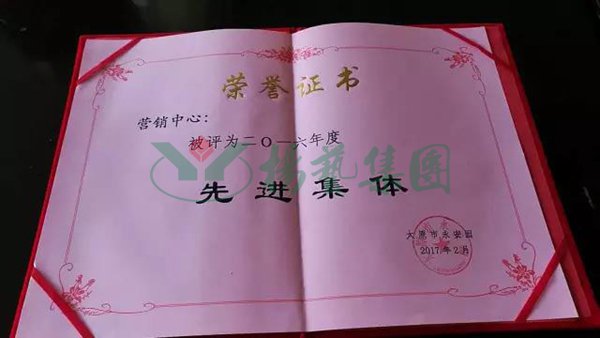 荣誉证书
营销中心:
被评为二〇一六年度
杨艺集團
先进集体
太原市永安园
2017年2月